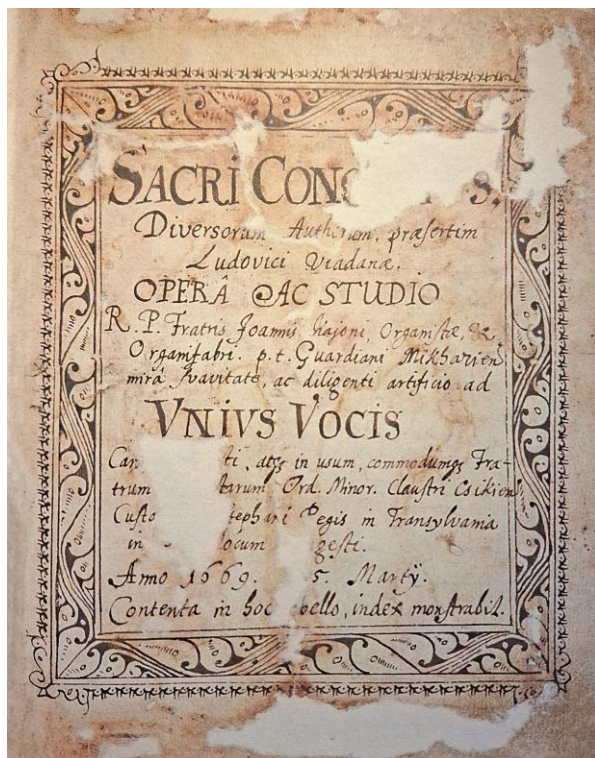 SACRI CONC S.
Diversorum Authorum, præsertim
Ludovici Viadanæ.
OPERÂ AC STUDIO
R. P. Fratris Joannis Kajoni, Organistæ, &
Organifabri. p. t. Guardiani Mikhazien
mirâ suavitate, ac diligenti artificio ad
VNIVS VOCIS
Can ti, atqȝ in usum, commodumqȝ Fra-
trum tarum Ord. Minor. Claustri Csikien
Custo tephani Regis in Transylvania
in locum gesti.
Anno 1669. 5. Martÿ.
Contenta in hoc bello, index monstrabit.